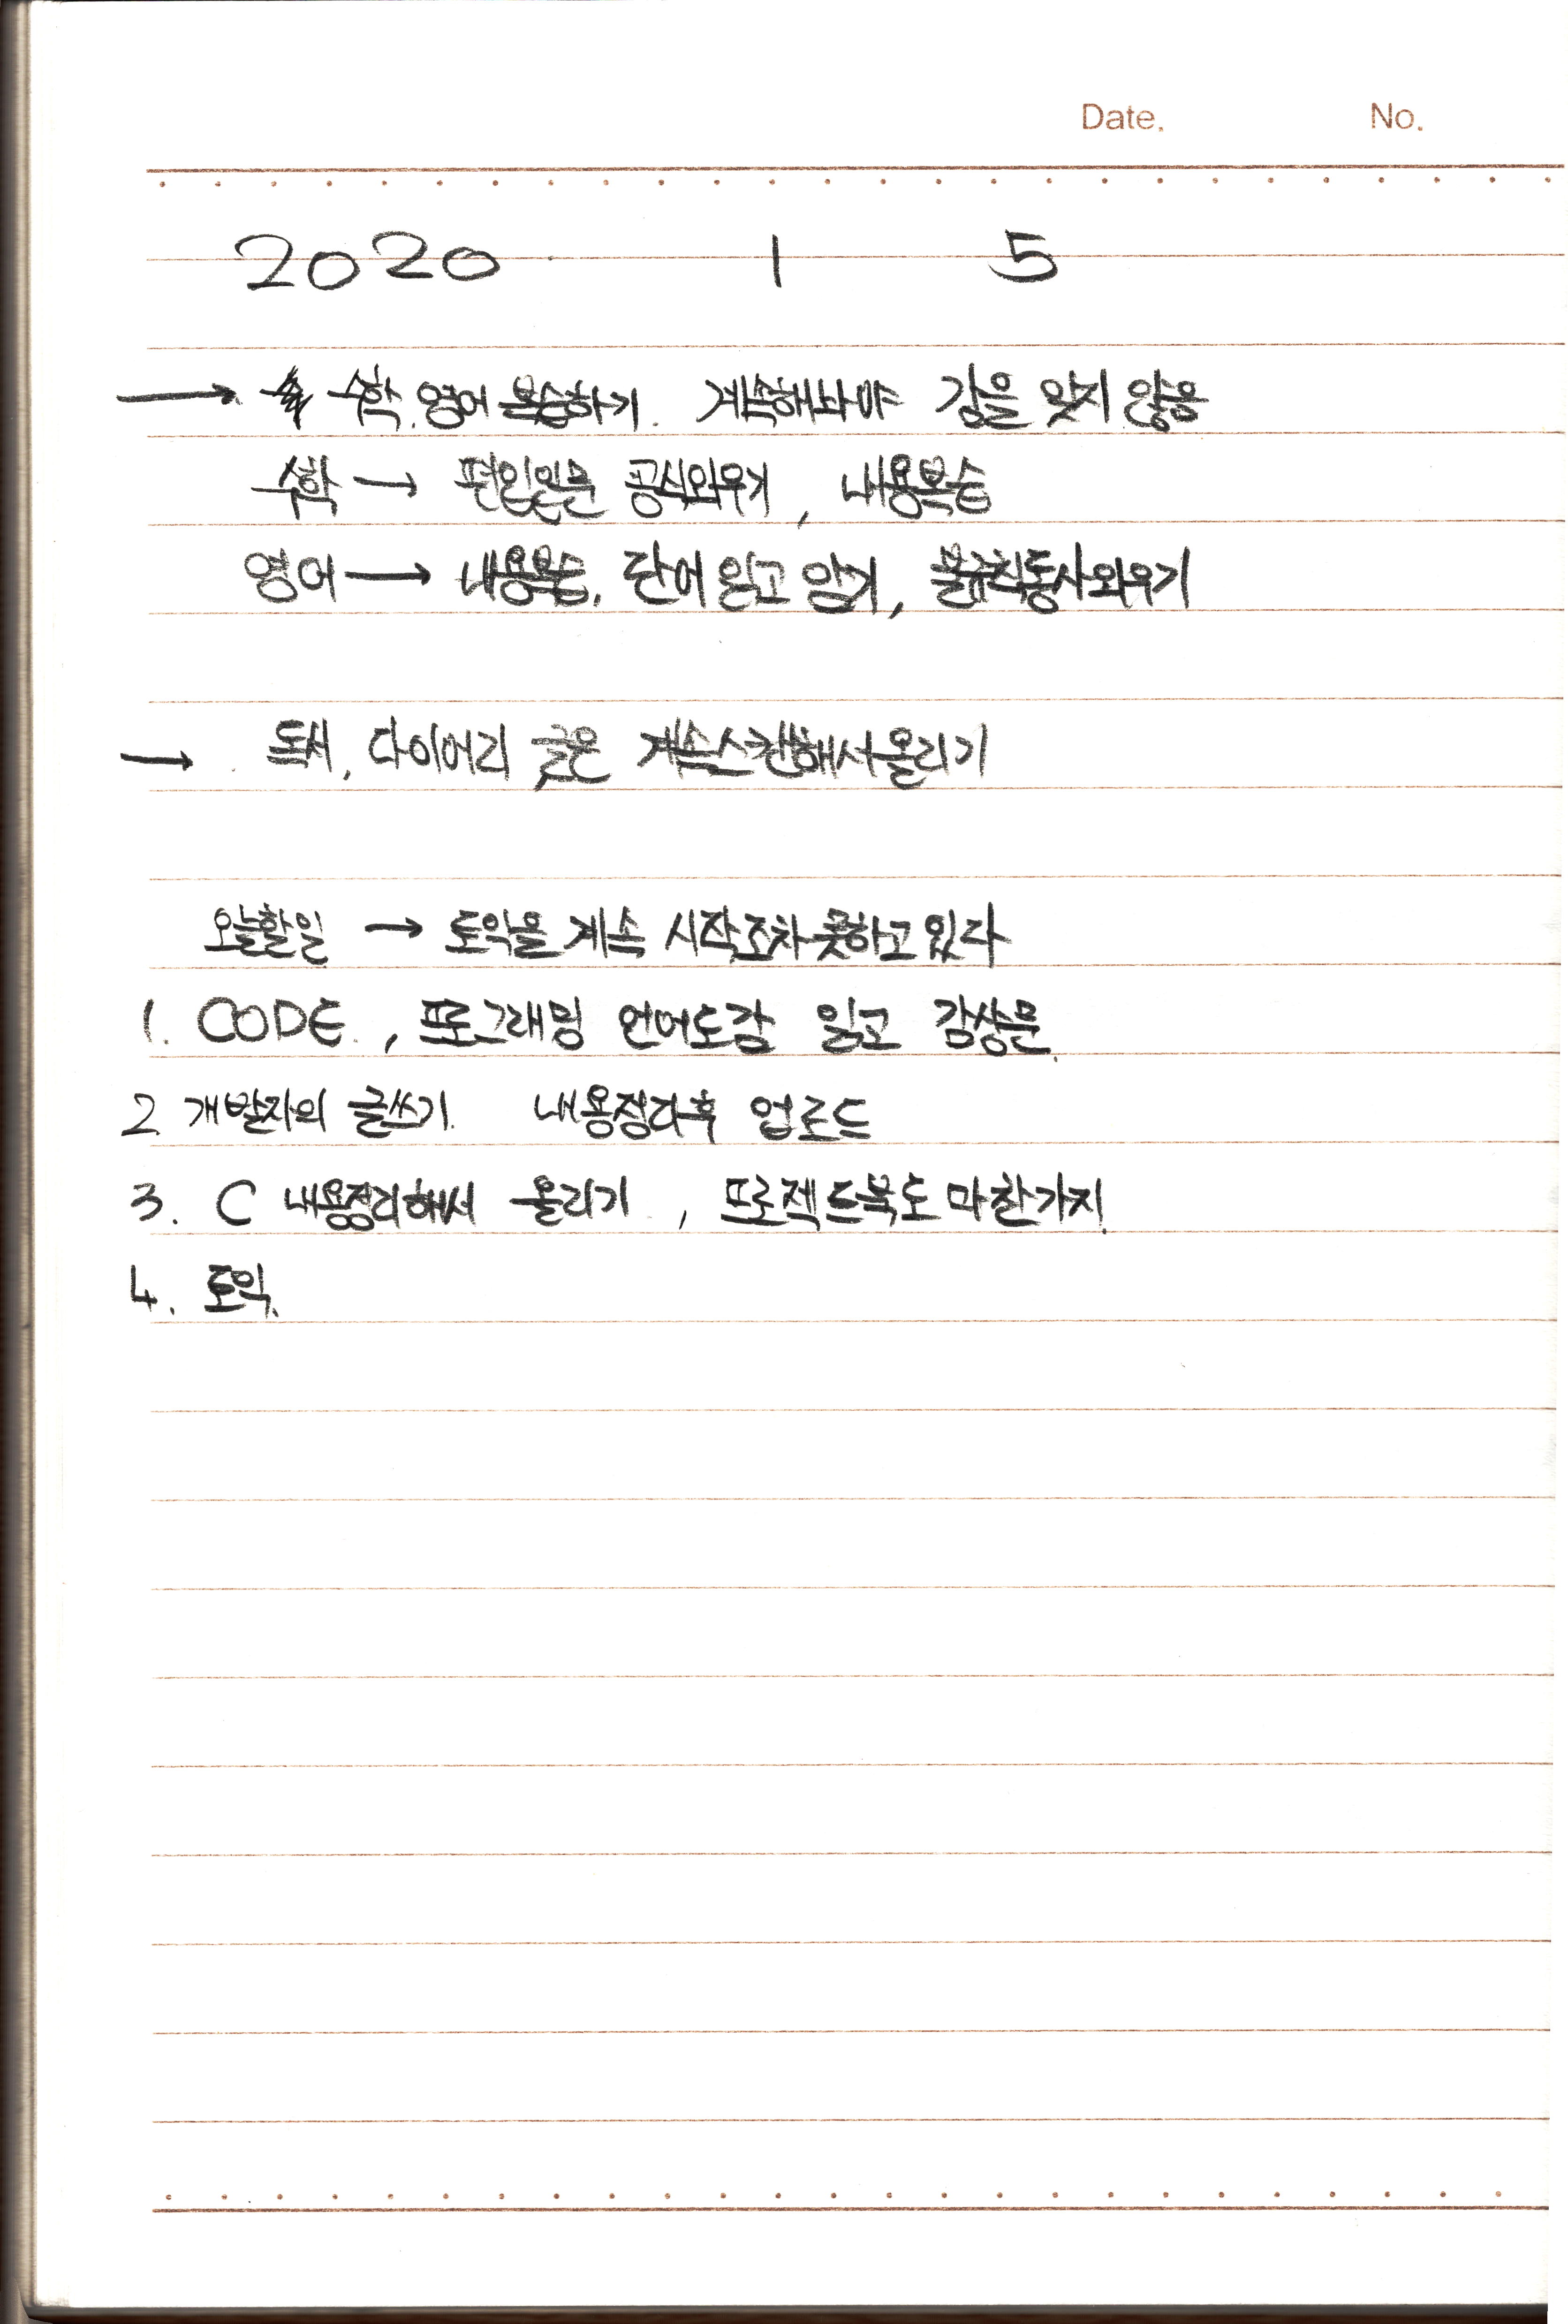 Date. No.
2020 1 5
→ 수학. 영어 복습하기. 계속해놔야 감을 잊지 않음
수학 → 편입인문 공식외우기, 내용복습
영어 → 내용복습, 단어 읽고 암기, 불규칙동사외우기
→ 독서, 다이어리 글은 계속스캔해서올리기
오늘할일 → 토익을 계속 시작조차못하고있다
1. CODE, 프로그래밍 언어도감 읽고 감상문.
2. 개발자의 글쓰기. 내용정리후 업로드
3. C 내용정리해서 올리기, 프로젝트북도 마찬가지.
4. 토익.